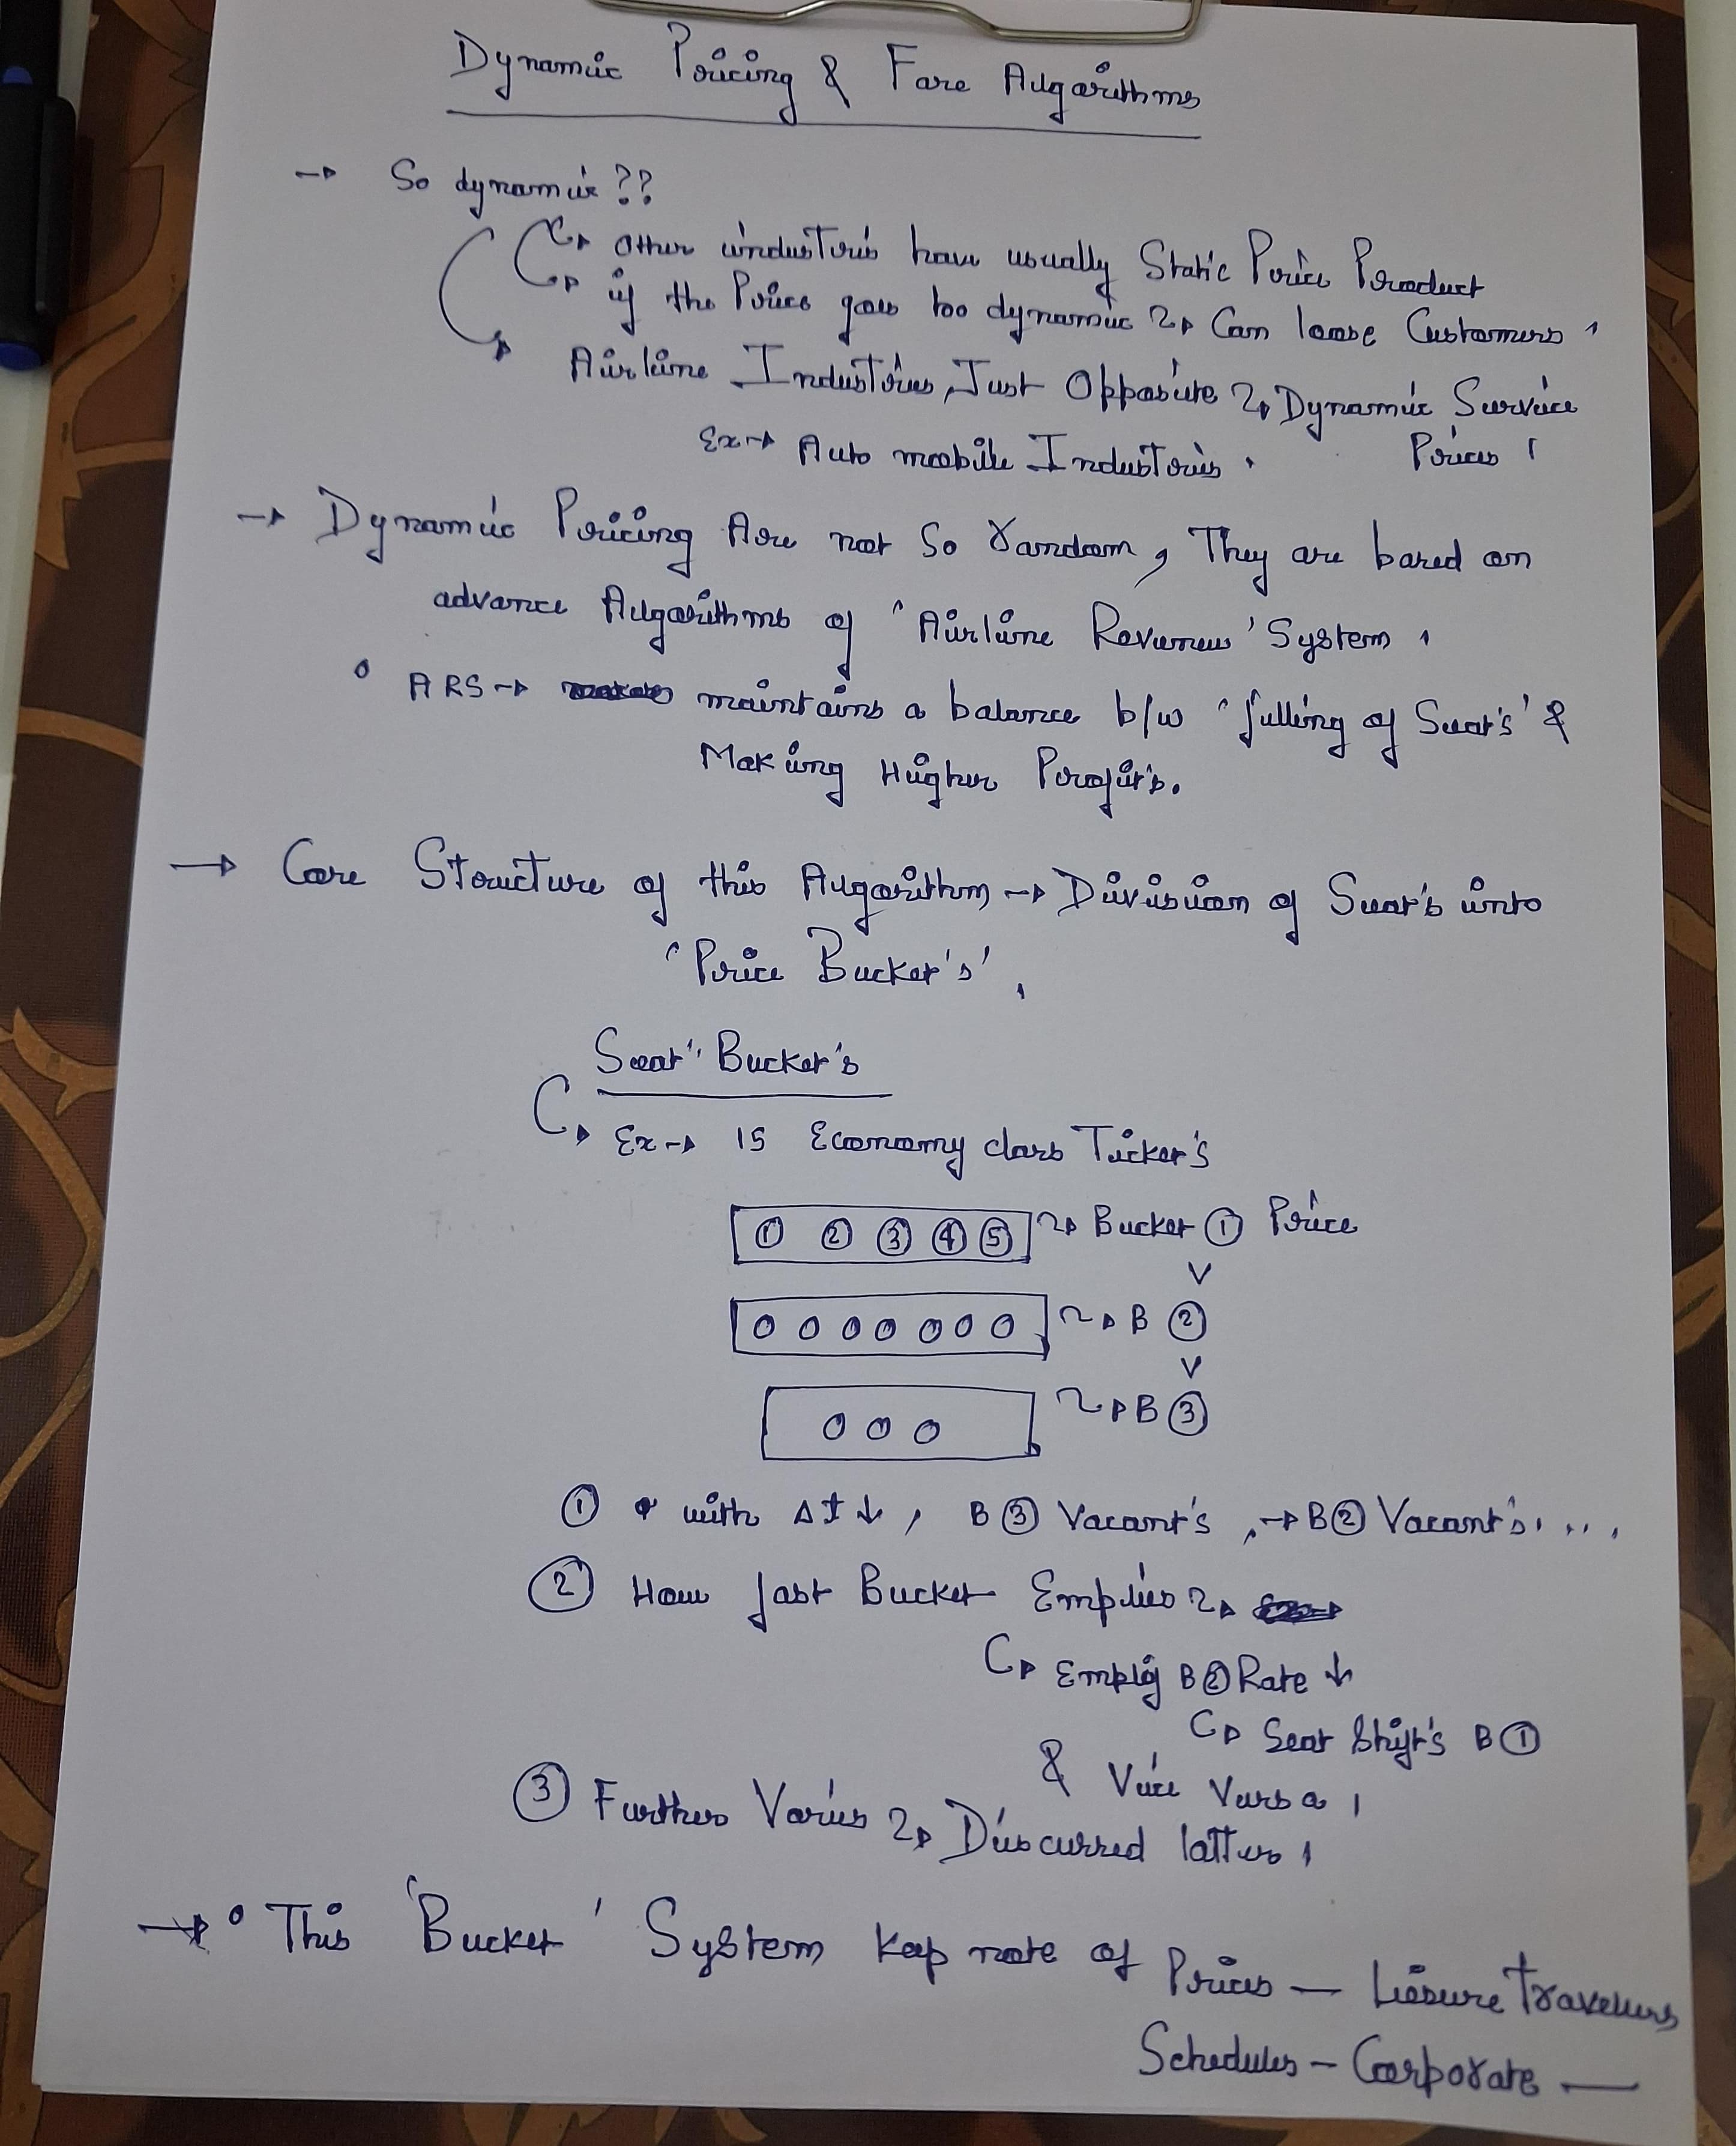 Dynamic Pricing & Fare Algorithms
→ So dynamic ??
↳ Other industries have usually Static Price Product
↳ if the Price goes too dynamic → Can loose Customers.
↳ Airline Industries, Just Opposite → Dynamic Service
Prices.
Ex → Auto mobile Industries.
→ Dynamic Pricing Are not So random, They are based on
advance Algorithms of 'Airline Revenew' System.
° ARS → maintains a balance b/w 'filling of Seat's' &
Making Higher Profit's.
→ Core Structure of this Algorithm → Division of Seat's into
'Price Bucket's'.
Seat" Bucket's
↳ Ex → 15 Economy class Ticket's
① ② ③ ④ ⑤ → Bucket ① Price
V
O O O O O O O → B ②
V
O O O → B ③
① with Δt ↓, B ③ Vacant's, → B ② Vacant's....
② How fast Bucket Empties →
↳ Emptig B ② Rate ↓
↳ Seat Shift's B ①
& Vice Versa.
③ Further Varies → Discussed latter.
→ ° This 'Bucket' System keep note of Prices — Liesure Travellers
Schedules – Corporate —